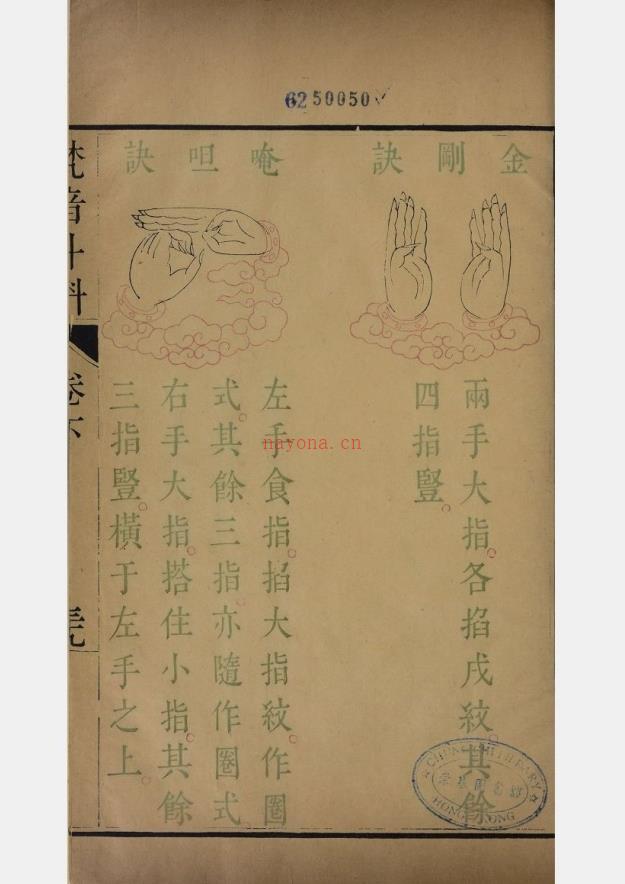 6250050
金剛訣
兩手大指。各掐戌紋。其餘
四指豎。
唵呾訣
左手食指。掐大指紋。作圈
式。其餘三指。亦隨作圈式。
右手大指。搭住小指。其餘
三指豎。橫于左手之上。
梵音斗科
卷下
nayona.cn
CHUNG CHI LIBRARY
崇基圖書館
HONG KONG